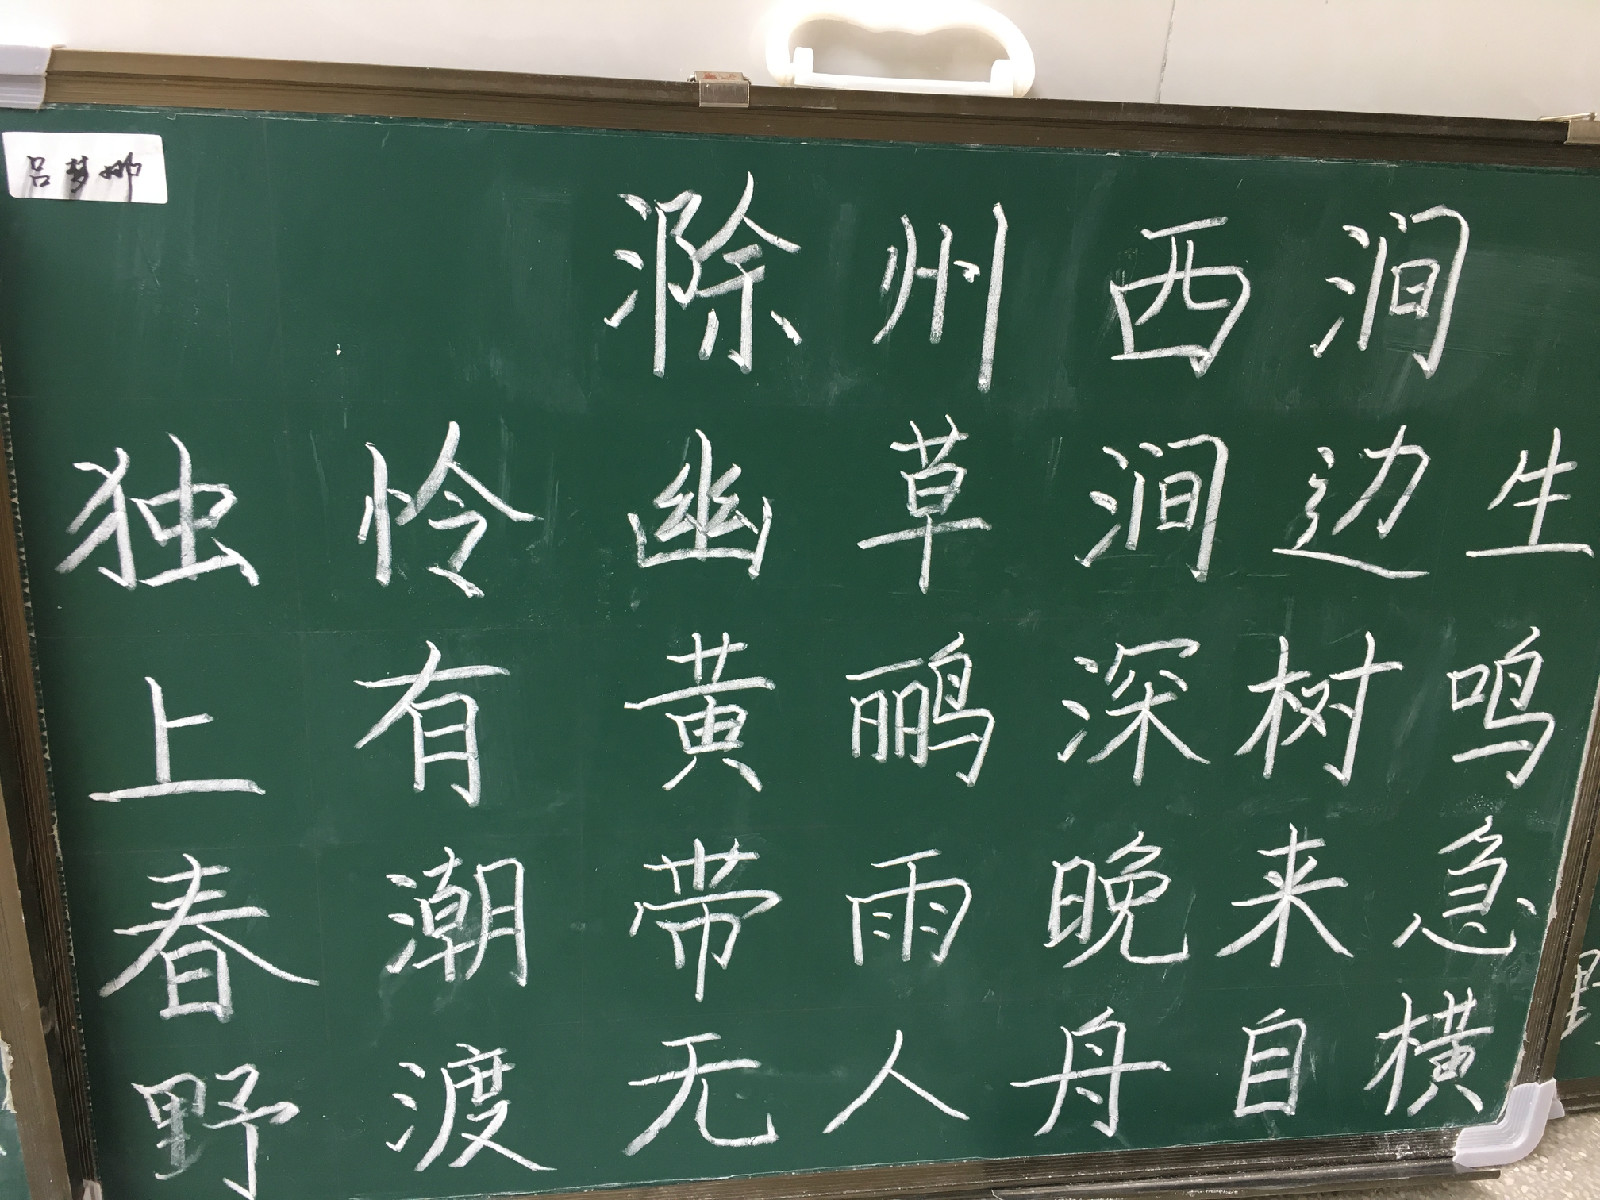 吕梦娜
滁州西涧
独怜幽草涧边生
上有黄鹂深树鸣
春潮带雨晚来急
野渡无人舟自横